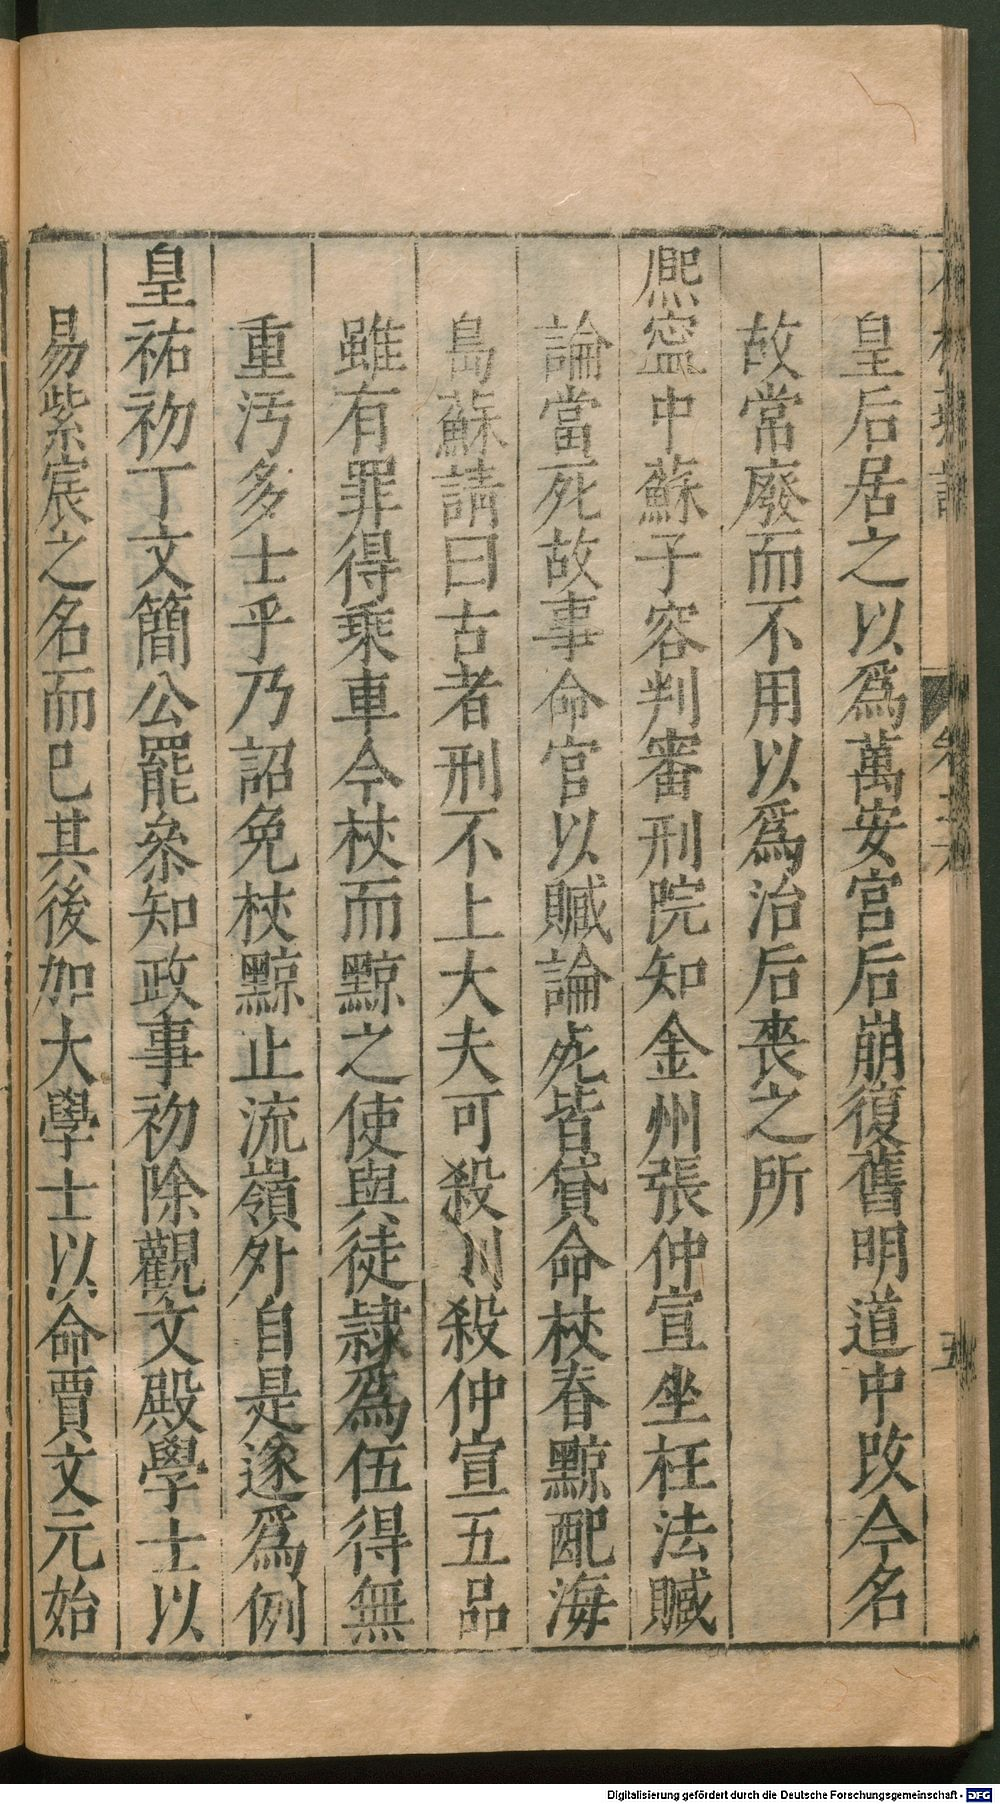 皇后居之以爲萬安宮后崩復舊明道中改今名
故常廢而不用以爲治后喪之所
熈寧中蘇子容判審刑院知金州張仲宣坐枉法贓
論當死故事命官以贓論死皆貸命杖脊黥配海
島蘇請曰古者刑不上大夫可殺則殺仲宣五品
雖有罪得乘車今杖而黥之使與徒隷爲伍得無
重汚多士乎乃詔免杖黥止流嶺外自是遂爲例
皇祐初丁文簡公罷叅知政事初除觀文殿學士以
易紫宸之名而已其後加大學士以命賈文元始
五
Digitalisierung gefördert durch die Deutsche Forschungsgemeinschaft - DFG